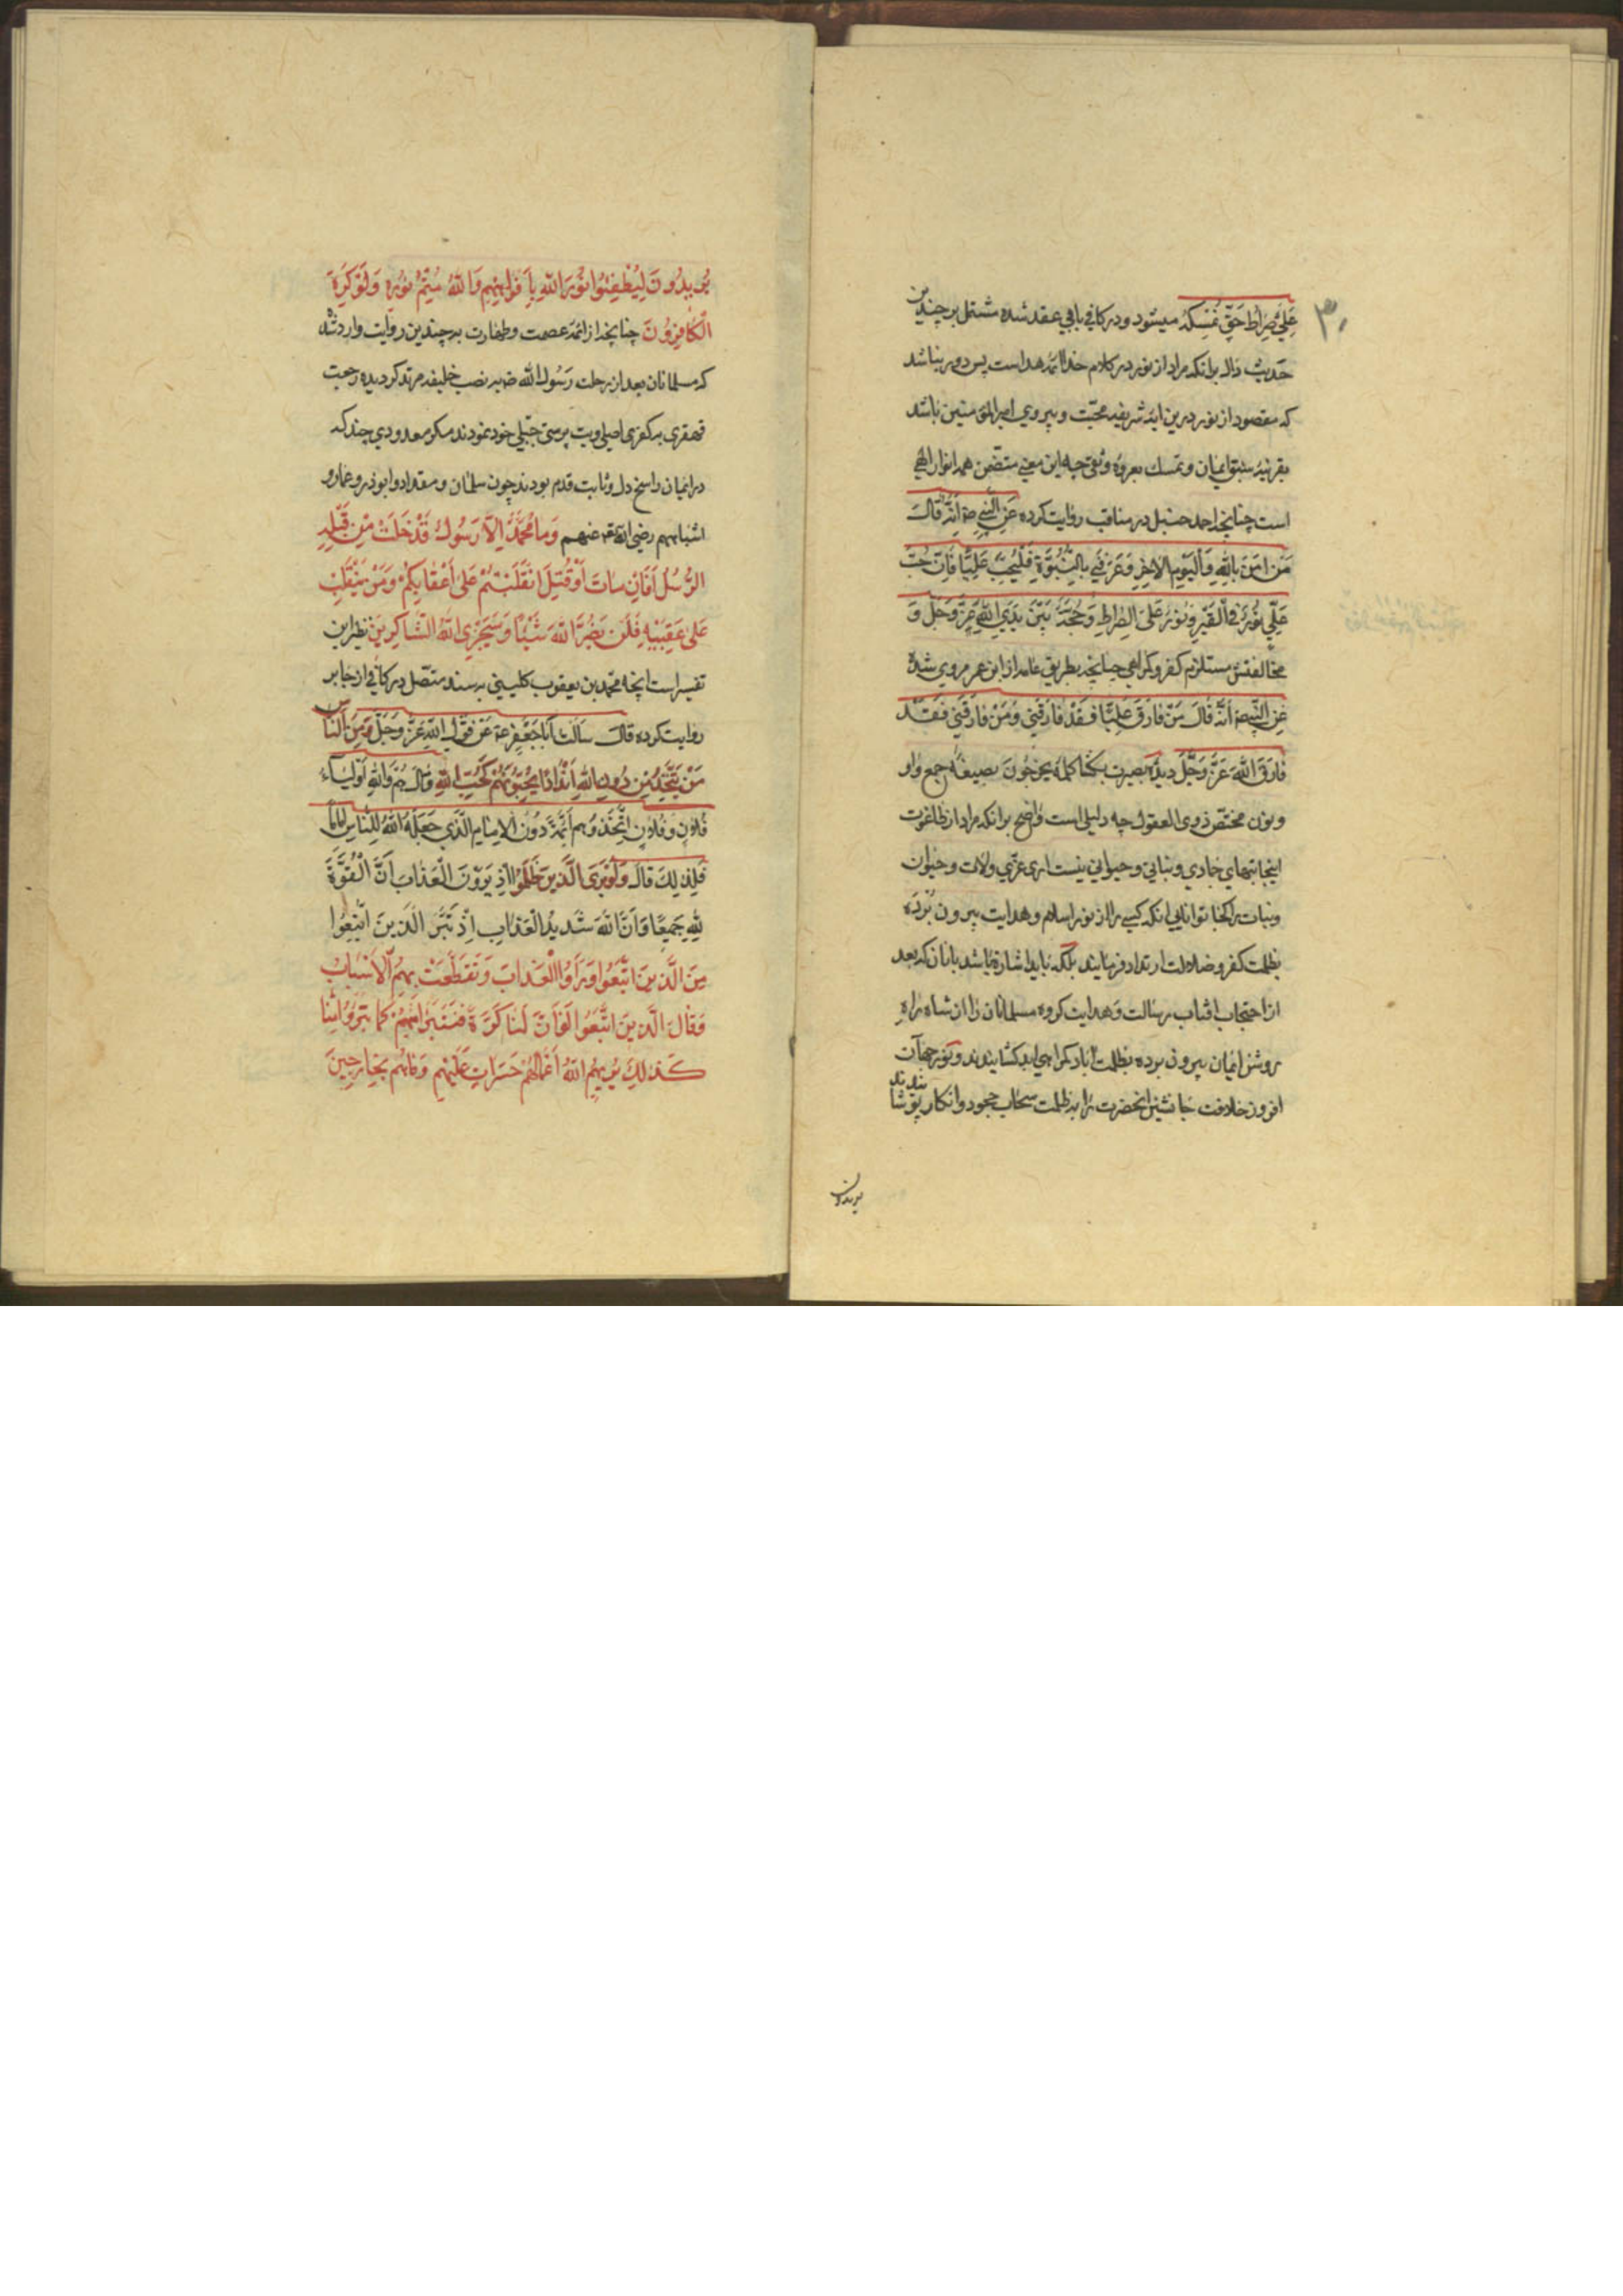 ۳۰
عَلِيٌّ صِرَاطُ حَقٍّ نُمْسِكُهُ میشود و در کافی بابی عقد شده مشتمل بر چندین
حدیث دال برانکه مراد از نور در کلام خدا ائمه هداست پس دور نباشد
که مقصود از نور درین ایه شریفه محبت و پیروی امیر المؤمنین باشد
بقرینه سبق ایمان و تمسک بعروه وثقی چه این معنی متضمن همه انوار الهی
است چنانچه احمد حنبل در مناقب روایت کرده عَنِ النَّبِيِّ صه اَنَّهُ قَالَ
مَنْ امَنَ بِاللهِ وَالْيَوْمِ الْاخِرِ وَعَرَفَنِي بِالنُّبُوَّةِ فَلْيُحِبَّ عَلِيًّا فَاِنَّ حُبَّ
عَلِيٍّ نُورٌ فِي الْقَبْرِ وَنُورٌ عَلَى الصِّرَاطِ وَحُجَّةٌ بَيْنَ يَدَيِ اللهِ عَزَّ وَجَلَّ وَ
مخالفتش مستلزم کفر و کمراهی چنانچه بطریق عامه از ابن عمر مروی شده
عَنِ النَّبِيِّ صه اَنَّهُ قَالَ مَنْ فَارَقَ عَلِيًّا فَقَدْ فَارَقَنِي وَمَنْ فَارَقَنِي فَقَدْ
فَارَقَ اللهَ عَزَّ وَجَلَّ دیده بصیرت بکشا کلمه یخرجون بصیغه جمع واو
و نون مختص ذوی العقول چه دلیلی است واضح برانکه مراد از طاغوت
اینجا بتهای جمادی و نباتی و حیوانی نیست اری عزی ولات و حیوان
و نبات را کجا توانایی انکه کسی را از نور اسلام و هدایت بیرون برده
بظلمت کفر و ضلالت ارتداد فرمایند بلکه باید اشاره باشد بانان که بعد
از احتجاب افتاب رسالت و هدایت کروه مسلمانان را از شاه راه
روشن ایمان بیرون برده بظلمت اباد کمراهی ابد کشانیدند و نور جهان
افروز خلافت جانشین انحضرت را بظلمت سحاب جحود و انکار پوشانیدند
یریدون
يُرِيدُونَ لِيُطْفِئُوا نُورَ اللهِ بِاَفْوَاهِهِمْ وَاللهُ مُتِمُّ نُورِهِ وَلَوْ كَرِهَ
الْكَافِرُونَ چنانچه از ائمه عصمت و طهارت بر چندین روایت وارد شده
که مسلمانان بعد از رحلت رَسُول الله صه بنصب خلیفه مرتد کردیده رجعت
قهقری بر کفر اصیلی و بت پرستی جبلی خود نمودند مکر معدودی چند که
در ایمان راسخ دل و ثابت قدم بودند چون سلمان و مقداد و ابوذر و عمار و
اشباههم رضی الله عنهم وَمَا مُحَمَّدٌ اِلَّا رَسُولٌ قَدْ خَلَتْ مِنْ قَبْلِهِ
الرُّسُلُ اَفَاِنْ مَاتَ اَوْ قُتِلَ انْقَلَبْتُمْ عَلَى اَعْقَابِكُمْ وَمَنْ يَنْقَلِبْ
عَلَى عَقِبَيْهِ فَلَنْ يَضُرَّ اللهَ شَيْئًا وَسَيَجْزِي اللهُ الشَّاكِرِينَ نظیر این
تفسیر است انچه محمد بن یعقوب کلینی بسند متصل در کافی از جابر
روایت کرده قَالَ سَاَلْتُ اَبَا جَعْفَرٍ عه عَنْ قَوْلِ اللهِ عَزَّ وَجَلَّ وَمِنَ النَّاسِ
مَنْ يَتَّخِذُ مِنْ دُونِ اللهِ اَنْدَادًا يُحِبُّونَهُمْ كَحُبِّ اللهِ قَالَ هُمْ وَاللهِ اَوْلِيَاءُ
فُلَانٍ وَفُلَانٍ اتَّخَذُوهُمْ اَئِمَّةً دُونَ الْاِمَامِ الَّذِي جَعَلَهُ اللهُ لِلنَّاسِ اِمَامًا
فَلِذٰلِكَ قَالَ وَلَوْ يَرَى الَّذِينَ ظَلَمُوا اِذْ يَرَوْنَ الْعَذَابَ اَنَّ الْقُوَّةَ
لِلهِ جَمِيعًا وَاَنَّ اللهَ شَدِيدُ الْعَذَابِ اِذْ تَبَرَّءَ الَّذِينَ اتُّبِعُوا
مِنَ الَّذِينَ اتَّبَعُوا وَرَاَوُا الْعَذَابَ وَتَقَطَّعَتْ بِهِمُ الْاَسْبَابُ
وَقَالَ الَّذِينَ اتَّبَعُوا لَوْ اَنَّ لَنَا كَرَّةً فَنَتَبَرَّاَ مِنْهُمْ كَمَا تَبَرَّؤُا مِنَّا
كَذٰلِكَ يُرِيهِمُ اللهُ اَعْمَالَهُمْ حَسَرَاتٍ عَلَيْهِمْ وَمَا هُمْ بِخَارِجِينَ